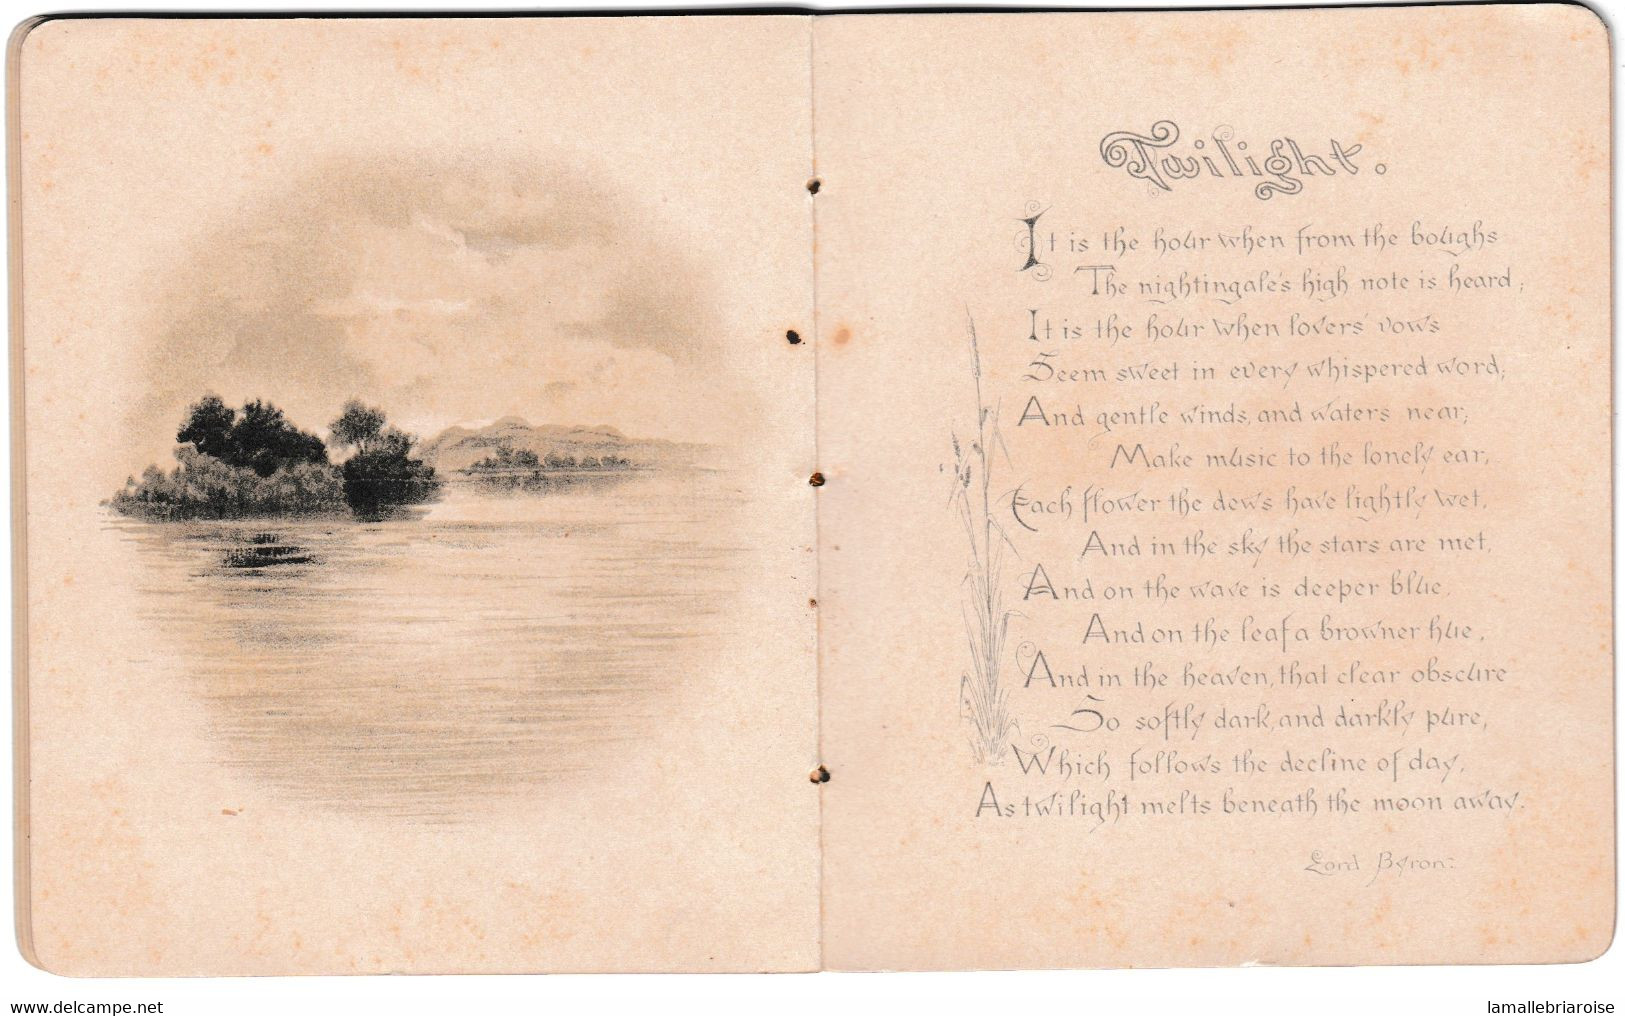 Twilight.
It is the hour when from the boughs
The nightingale's high note is heard;
It is the hour when lovers' vows
Seem sweet in every whispered word;
And gentle winds, and waters near,
Make music to the lonely ear,
Each flower the dews have lightly wet,
And in the sky the stars are met,
And on the wave is deeper blue,
And on the leaf a browner hue,
And in the heaven, that clear obscure
So softly dark, and darkly pure,
Which follows the decline of day,
As twilight melts beneath the moon away.
Lord Byron.
delcampe.net
lamallebriaroise